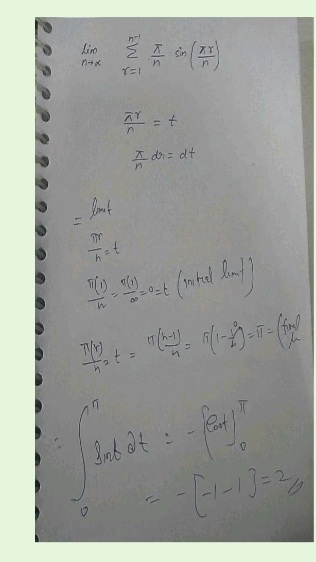 lim n→∞ n-1 Σ r=1 π/n sin(πr/n)
πr/n = t
π/n dr = dt
= limit
πr/n = t
π(1)/n = π(1)/∞ = 0 = t (initial limit)
π(r)/n = t = π(n-1)/n = π(1-1/n) = π = (final
= ∫₀^π sint dt = -[cost]₀^π
= -[-1-1] = 2